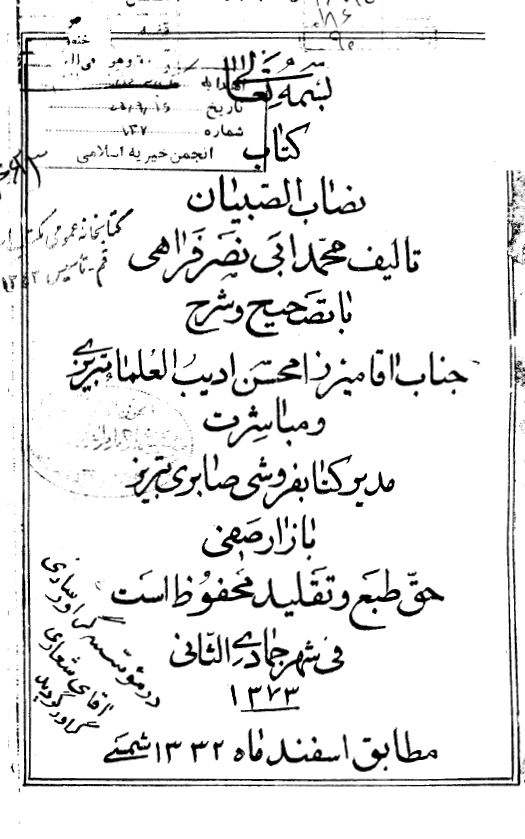 بسمه تعالی
اهدا به
تاریخ
شماره ۱۳۷
انجمن خیریه اسلامی
کتاب
نصاب الصبیان
تالیف محمد ابی نصر فراهی
با تصحیح و شرح
جناب اقا میرزا محسن ادیب العلما تبریزی
و مباشرت
مدیر کتابفروشی صابری تبریز
بازار صفی
حق طبع و تقلید محفوظ است
فی شهر جمادی الثانی
۱۳۷۳
مطابق اسفند ماه ۱۳۳۲ شمسی
کتابخانه عمومی
قم - تاسیس
در مؤسسه گراورسازی
اقای شعاری
گراور گردید